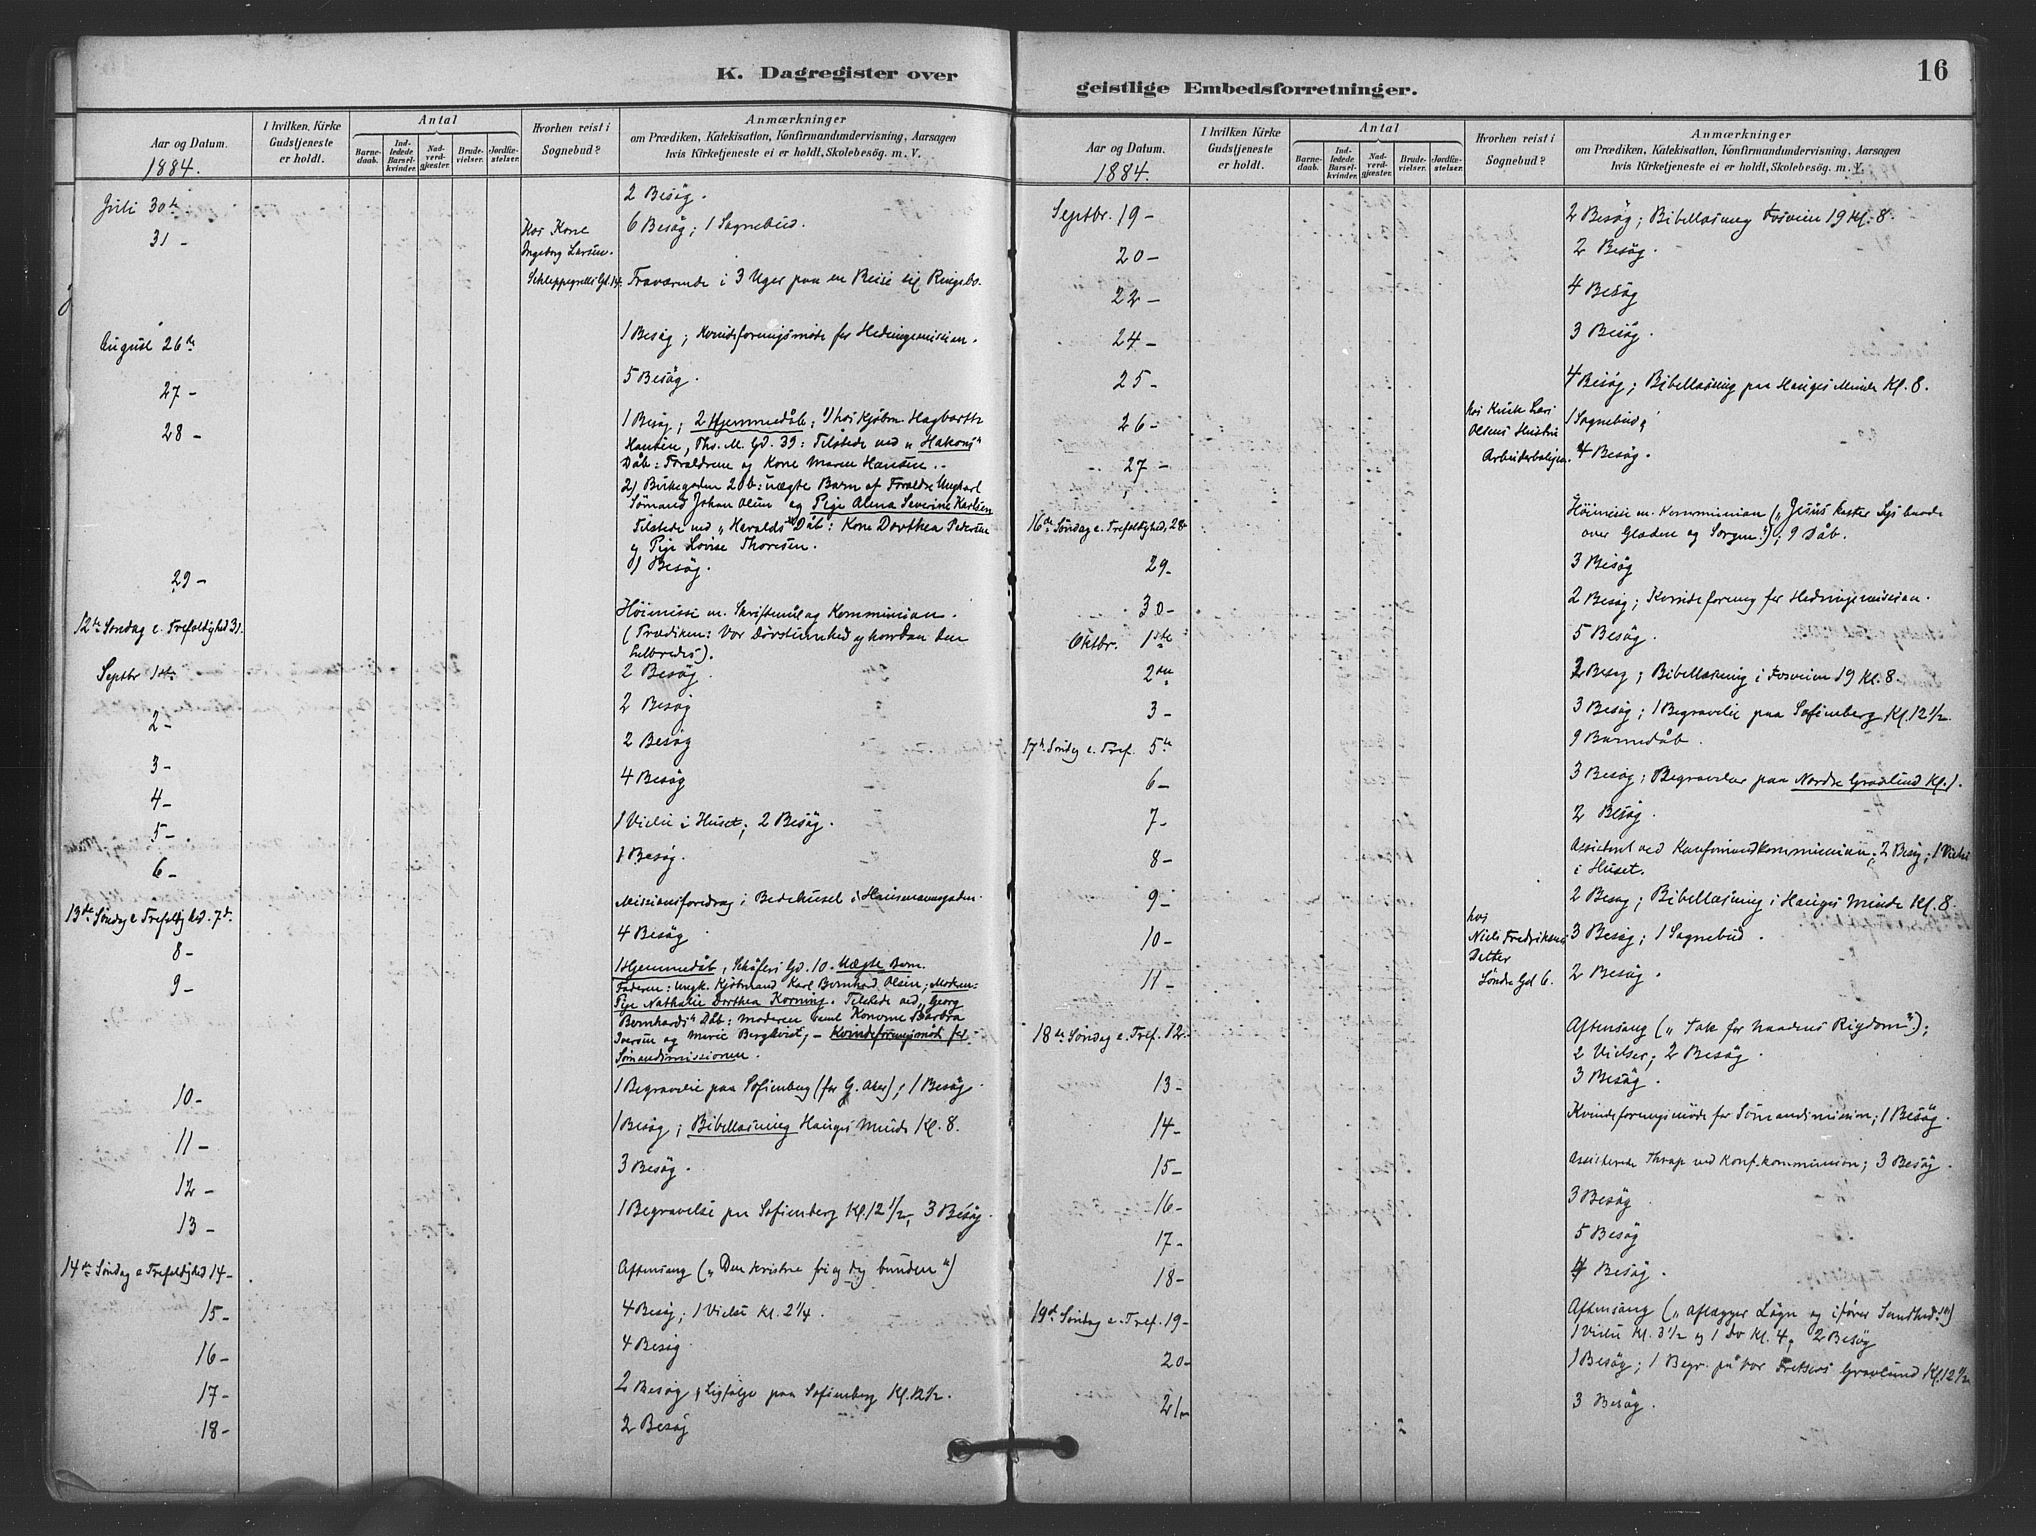 K. Dagregister over
Aar og Datum.
1884.
I hvilken Kirke
Gudstjeneste
er holdt.
Antal
Barne-
daab.
Ind-
ledede
Barsel-
kvinder.
Nad-
verd-
gjester.
Brude-
vielser.
Jordfæ-
stelser.
Hvorhen reist i
Sognebud?
Anmærkninger
om Prædiken, Katekisation, Konfirmandundervisning, Aarsagen
hvis Kirketjeneste ei er holdt, Skolebesøg. m. V.
Juli 30te
2 Besøg.
31 -
Hos Kone
Ingeborg Larsen
Schleppegrells Gd. 14.
6 Besøg; 1 Sognebud.
Fraværende i 3 Uger paa en Reise til Ringebo.
August 26de
1 Besøg; Kvindeforeningsmøde for Hedningemission.
27 -
5 Besøg.
28 -
1 Besøg; 2 Hjemmedåb; 1) hos Kjøbm. Hagbarth
Hansen, Ths. M. Gd. 39: Tilstede ved „Hakons"
Dåb: Forældrene og Kone Maren Hansen.
2) Birkegaden 20b: uægte Barn af Forældre Ungkarl
Sømand Johan Olsen og Pige Alma Severine Karlsen
Tilstede ved „Haralds" Dåb: Kone Dorthea Pedersen
og Pige Lovise Thoresen.
29 -
1 Besøg.
12te Søndag e. Trefoldighed 31.
Høimesse m. Skriftemål og Kommunion.
(Prædiken: Vor Døvstumhed og hvordan den
helbredes).
Septbr 1ste
2 Besøg.
2 -
2 Besøg
3 -
2 Besøg
4 -
4 Besøg
5 -
1 Vielse i Huset; 2 Besøg.
6 -
1 Besøg.
13de Søndag e Trefoldighed. 7de
Missionsforedrag i Bedehuset i Hausmannsgaden.
8 -
4 Besøg
9 -
1 Hjemmedåb, Schäfers Gd. 10. Uægte Barn.
Faderen: Ungk. Kjøbmand Karl Bernhard Olsen; Moderen:
Pige Nathalie Dorthea Korning. Tilstede ved „Georg
Bernhards" Dåb: Moderen samt Konerne Barbra
Iversen og Marie Bergkvist, – Kvindeforeningsmøde for
Sømandsmissionen.
10 -
1 Begravelse paa Sofienberg (for G. Aker); 1 Besøg.
11 -
1 Besøg; Bibellæsning Hauges Minde Kl. 8.
12 -
3 Besøg.
13 -
1 Begravelse paa Sofienberg Kl. 12 1/2, 3 Besøg.
14de Søndag e Trefoldighed 14 -
Aftensang („Den kristne fri og dog bunden")
15 -
4 Besøg; 1 Vielse Kl. 2 1/4.
16 -
4 Besøg
17 -
2 Besøg, Ligfølge paa Sofienberg Kl. 12 1/2.
18 -
2 Besøg
geistlige Embedsforretninger.
16
Aar og Datum.
1884.
I hvilken Kirke
Gudstjeneste
er holdt.
Antal
Barne-
daab.
Ind-
ledede
Barsel-
kvinder.
Nad-
verd-
gjester.
Brude-
vielser.
Jordfæ-
stelser.
Hvorhen reist i
Sognebud?
Anmærkninger
om Prædiken, Katekisation, Konfirmandundervisning, Aarsagen
hvis Kirketjeneste ei er holdt, Skolebesøg. m. V.
Septbr. 19 -
2 Besøg; Bibellæsning Fosveien 19 Kl. 8.
20 -
2 Besøg.
22 -
4 Besøg
24 -
3 Besøg.
25 -
4 Besøg; Bibellæsning paa Hauges Minde Kl. 8.
26 -
hos Kusk Lars
Olsens Hustru
Arbeiderboligen.
1 Sognebud;
27 -
4 Besøg.
16de Søndag e. Trefoldighed, 28 -
Høimesse m. Kommunion („Jesus kaster Lys baade
over Glæden og Sorgen."); 9 Dåb.
29 -
3 Besøg
30 -
2 Besøg; Kvindeforening for Hedningemission.
Oktbr. 1ste
5 Besøg.
2den
2 Besøg; Bibellæsning i Fosveien 19 Kl. 8.
3 -
3 Besøg; 1 Begravelse paa Sofienberg Kl. 12 1/2.
17de Søndag e. Tref. 5te
9 Barnedåb.
6 -
3 Besøg; Begravelse paa Nordre Gravlund Kl. 1.
7 -
2 Besøg.
8 -
Assisteret ved Konfirmandkommunion; 2 Besøg; 1 Vielse
i Huset.
9 -
2 Besøg; Bibellæsning i Hauges Minde Kl. 8.
10 -
hos
Niels Fredriksens
Datter
Søndre Gd 6.
3 Besøg; 1 Sognebud.
11 -
2 Besøg.
18de Søndag e. Tref. 12 -
Aftensang („Tak for Naadens Rigdom");
2 Vielser; 2 Besøg.
13 -
3 Besøg.
14 -
Kvindeforeningsmøde for Sømandsmission; 1 Besøg.
15 -
Assisterede Thrap ved Konf.kommunion; 3 Besøg.
16 -
3 Besøg
17 -
5 Besøg
18 -
4 Besøg.
19de Søndag e. Tref. 19 -
Aftensang („Aflægger Løgn og ifører Sandhed!")
1 Vielse Kl. 3 1/2 og 1 do Kl. 4, 2 Besøg
20 -
1 Besøg; 1 Begr. på Vor Frelsers Gravlund Kl. 12 1/2
21 -
3 Besøg.